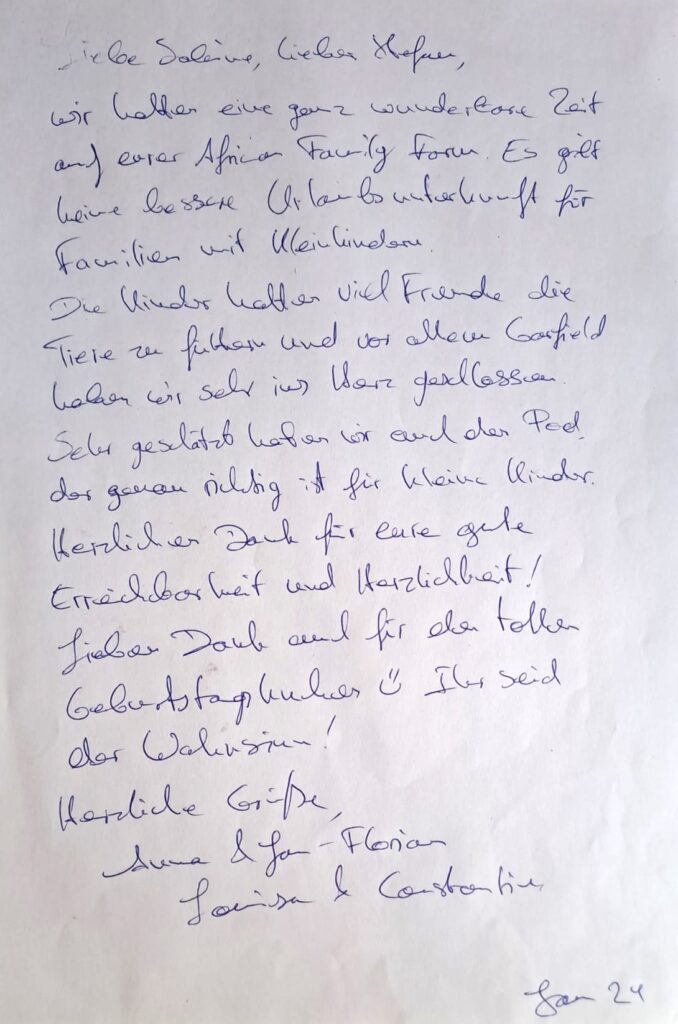 Liebe Sabine, lieber Stefan,
wir hatten eine ganz wunderbare Zeit
auf eurer African Family Farm. Es gibt
keine bessere Urlaubsunterkunft für
Familien mit Kleinkindern.
Die Kinder hatten viel Freude die
Tiere zu füttern und vor allem Garfield
haben wir sehr ins Herz geschlossen.
Sehr geschätzt haben wir auch den Pool,
der genau richtig ist für kleine Kinder.
Herzlichen Dank für eure gute
Erreichbarkeit und Herzlichkeit!
Lieben Dank auch für den tollen
Geburtstagskuchen ☺ Ihr seid
der Wahnsinn!
Herzliche Grüße,
Anna & Jan-Florian
Louisa & Constantin
Jan 24